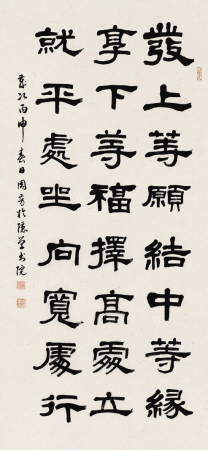 發上等願結中等緣
享下等福擇高處立
就平處坐向寬處行
歲次丙申春日於書院